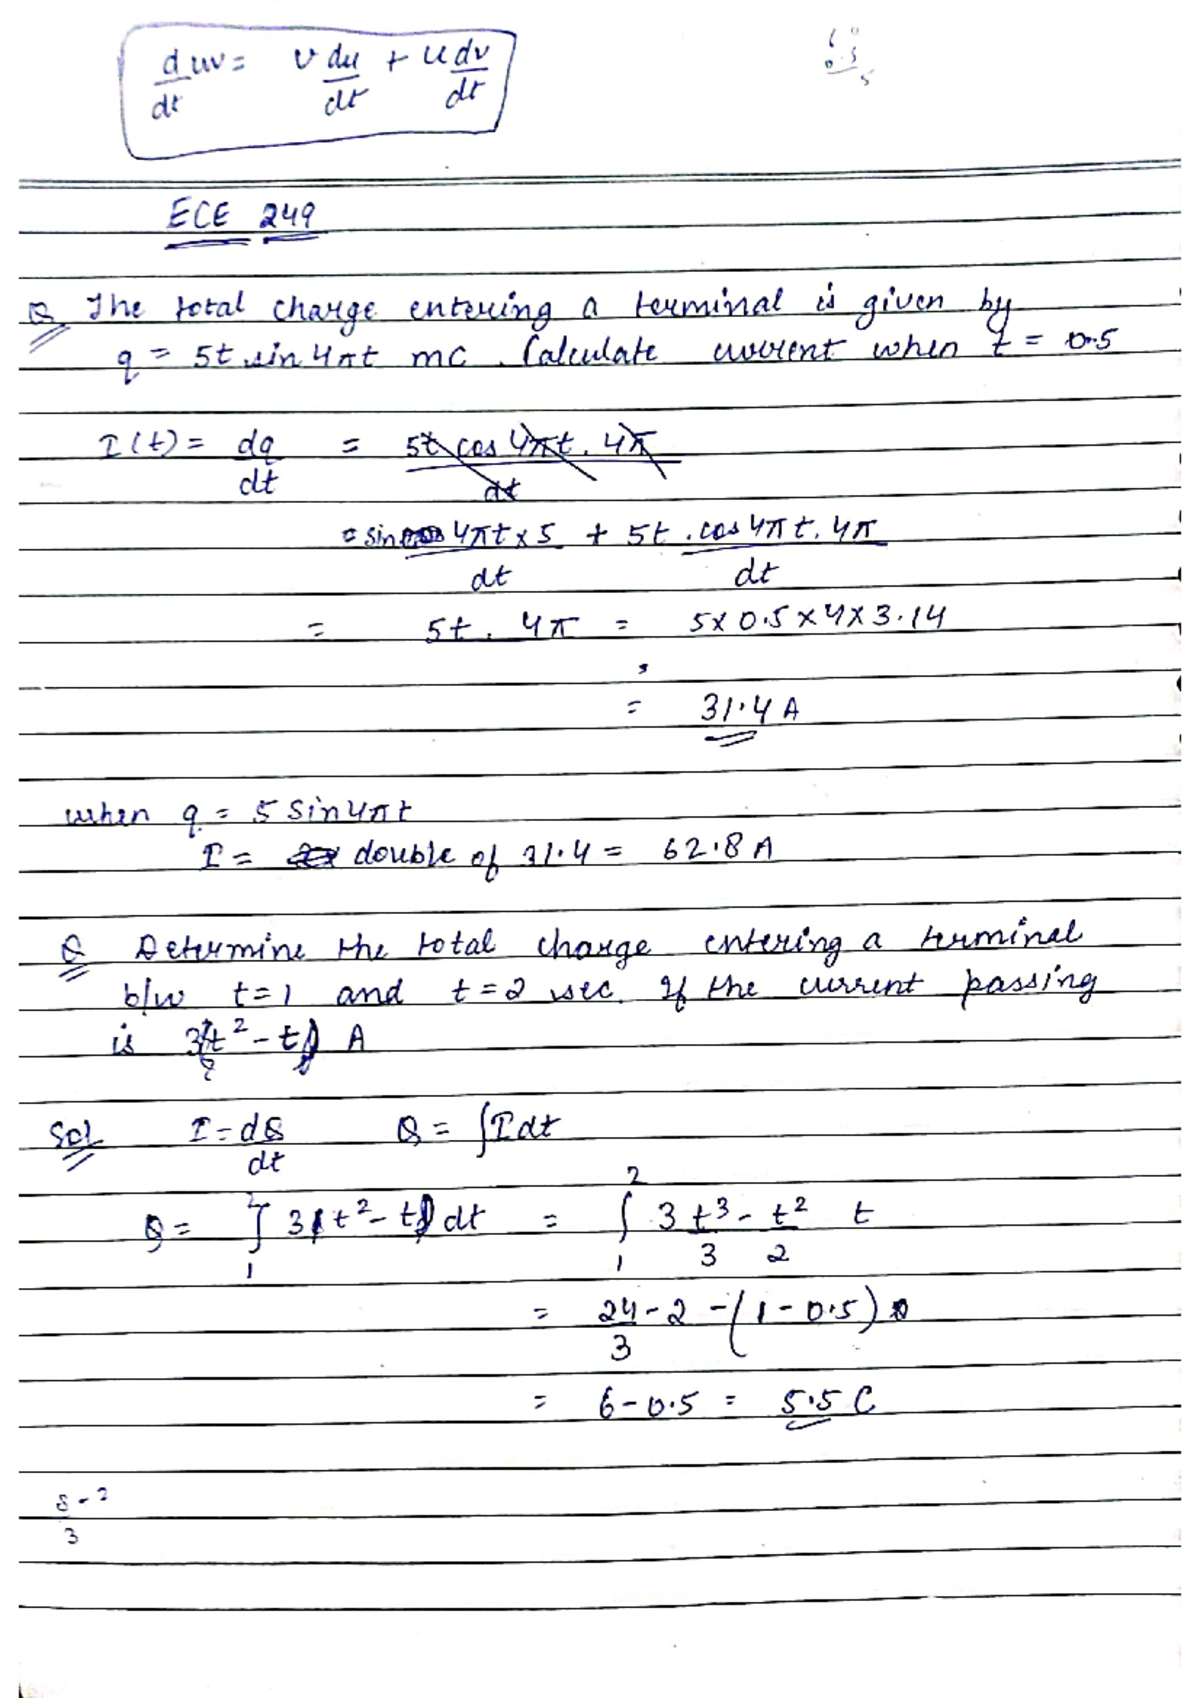 d uv = v du + u dv
dt dt dt
ECE 249
Q The total charge entering a terminal is given by
q = 5t sin 4πt mC. Calculate current when t = 0.5
I(t) = dq = 5t cos 4πt . 4π
dt dt
= sin 4πt x 5 + 5t . cos 4πt. 4π
dt dt
= 5t . 4π = 5 x 0.5 x 4 x 3.14
= 31.4 A
when q = 5 sin 4πt
I = double of 31.4 = 62.8 A
Q Determine the total charge entering a terminal
b/w t=1 and t=2 sec. If the current passing
is 3t² - t A
Sol I = dQ Q = ∫I dt
dt
2 2
Q = ∫ 3t² - t dt = ∫ 3 t³ - t² t
1 1 3 2
= 24 - 2 - (1 - 0.5)
3
= 6 - 0.5 = 5.5 C
8 - 2
3